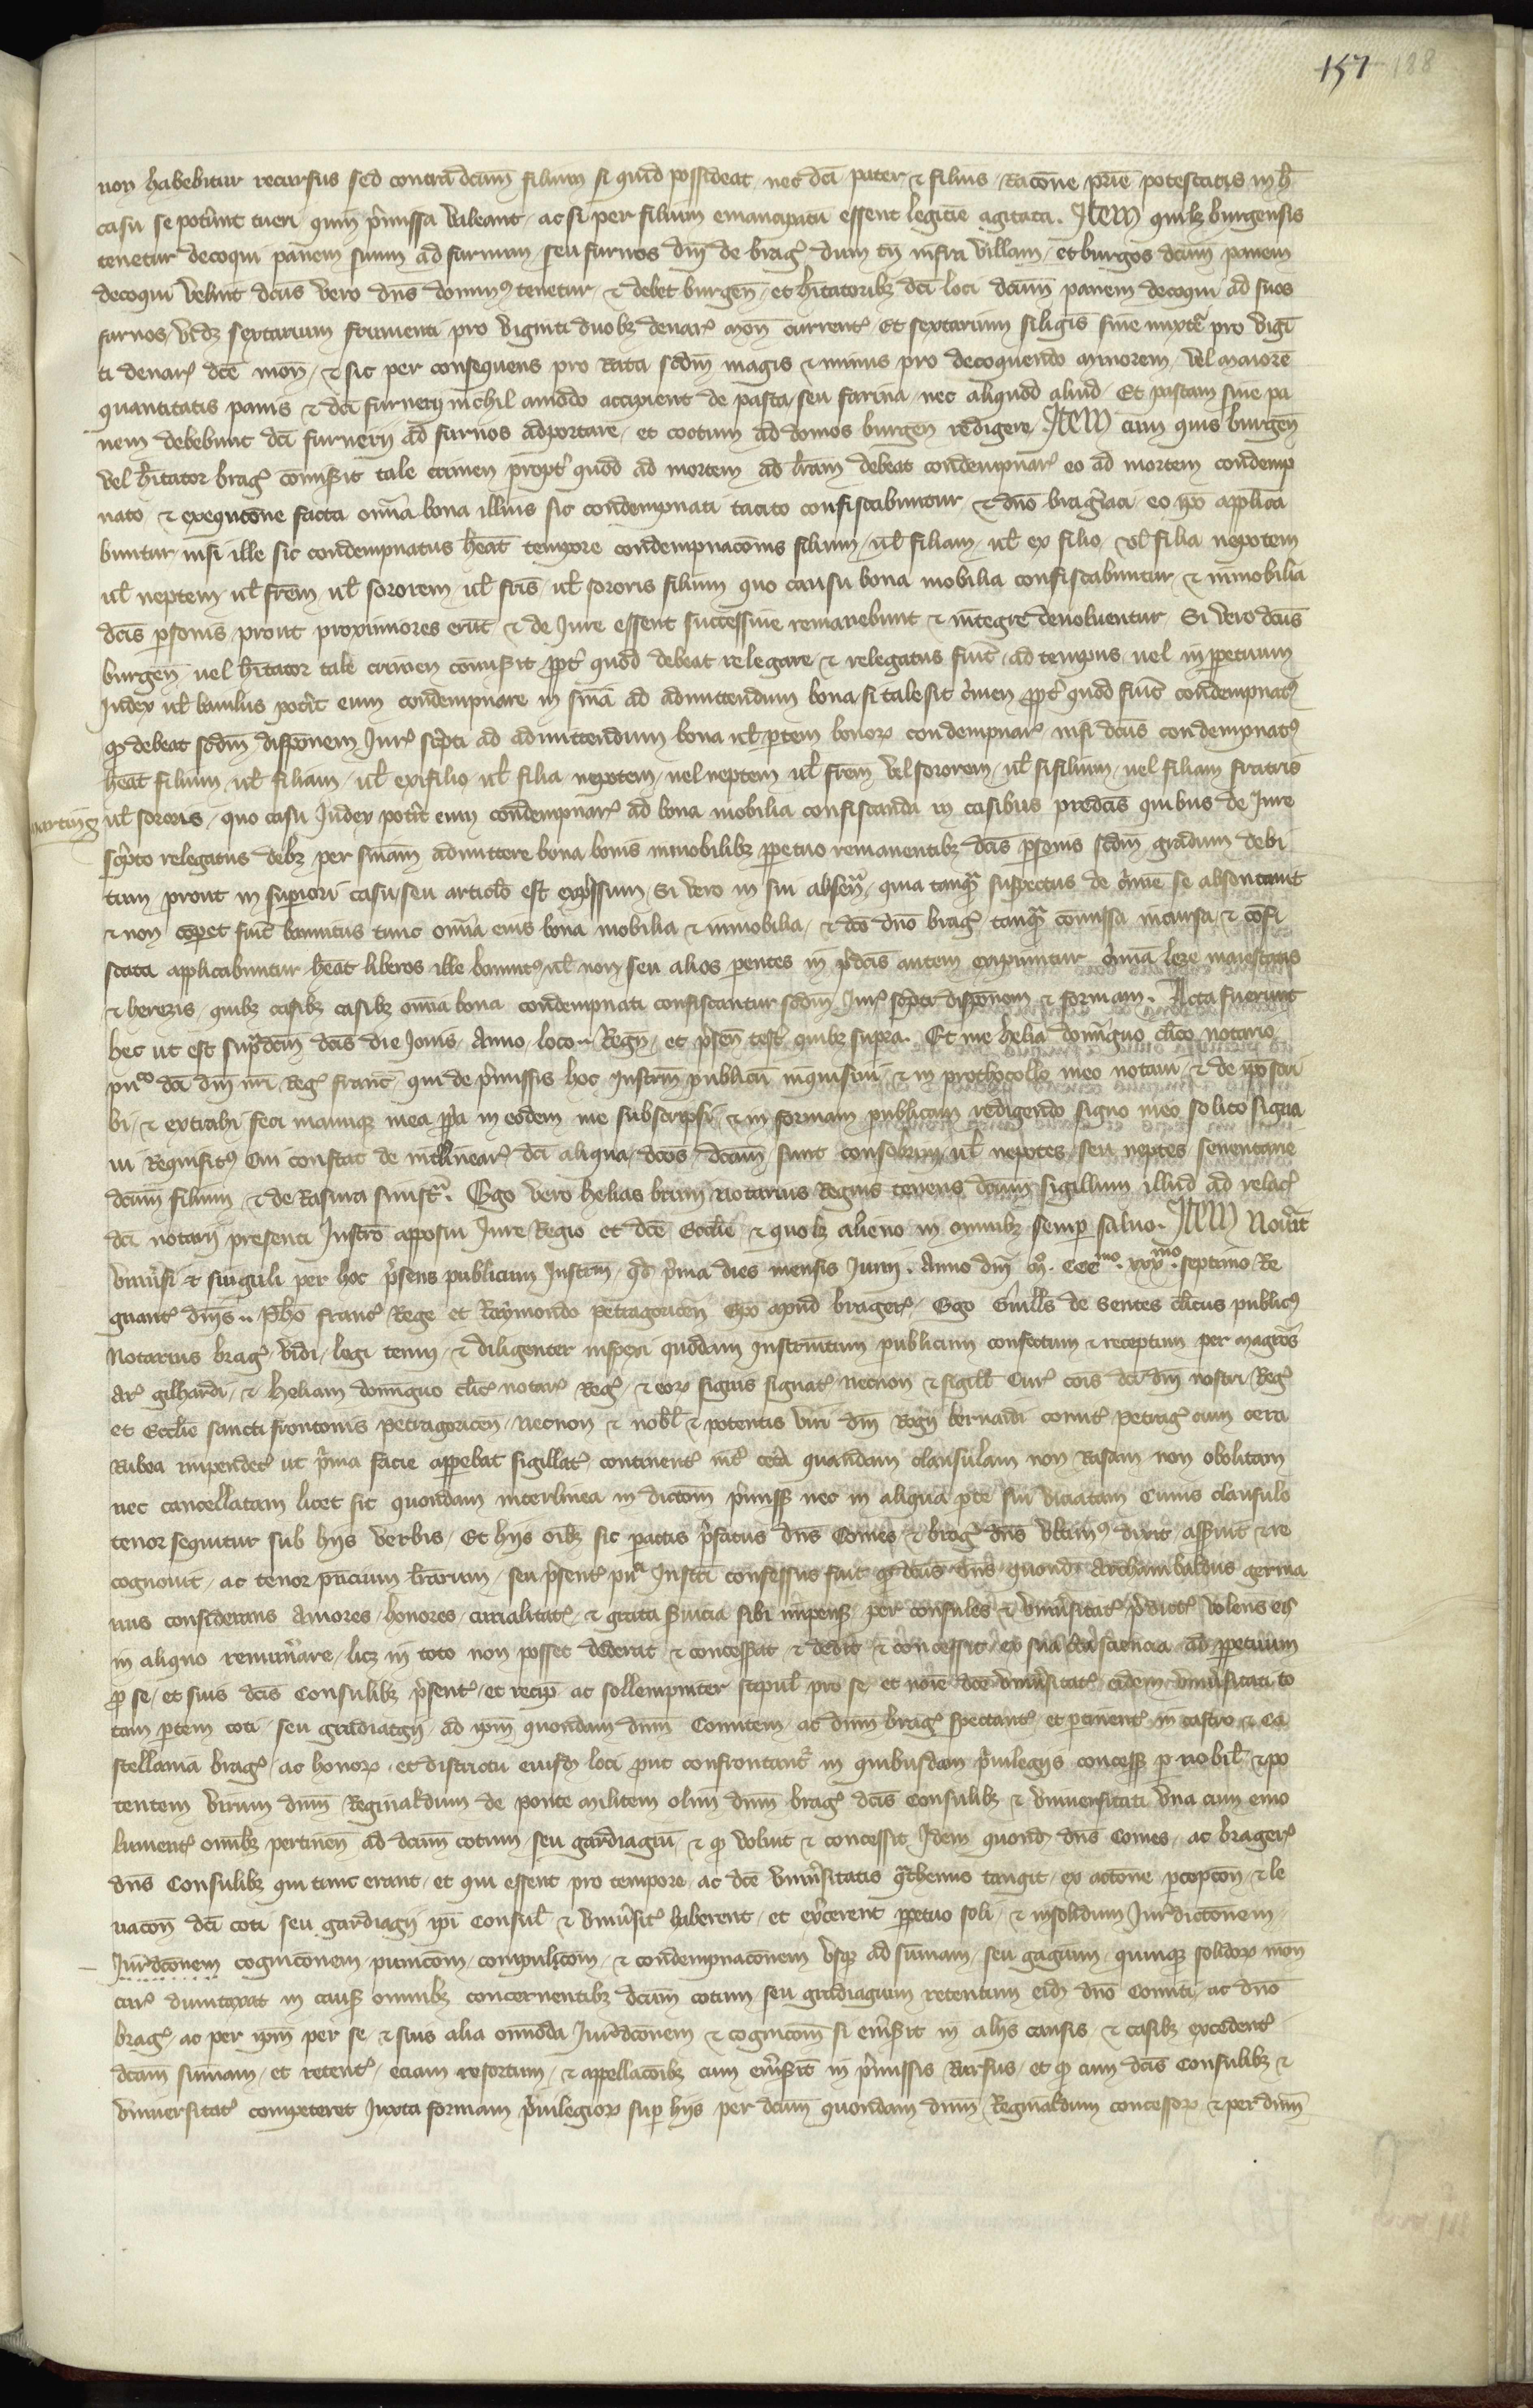 157 188
non habebitur recursus sed contra dcum filium si quid possideat nec dci pater & filius racone prie potestatis in h
casu se potunt tueri quin pmissa valeant ac si per filium emancipatu essent legitie agitata. Item quilz burgensis
tenetur decoqui panem suum ad furnum seu furnos dni de brag dum tn infra villam et burgos dcum panem
decoqui velint dcus vero dns domin9 tenetur & debet burgen et hitatoribz dci loci dcum panem decoqui ad suos
furnos vidz sextarium frumenti pro viginti duobz denar mon current Et sextarium siligis sine mixte pro vigi
ti denar dce mon & sic per consequens pro rata scdm magis & minus pro decoquendo minorem vel maiore
quantitatis panis & dci furnerij nichil amodo accipient de pasta seu farina nec aliquod aliud Et pastam sine pa
nem debebunt dci furnerij ad furnos adportare et coctum ad domos burgen redigere Item cum quis burgen
vel hitator brag comisit tale crimen propt quod ad mortem ad hram debeat condempnar eo ad mortem condemp
nato & exequcone facta omia bona illius sic condempnati tacito confiscabuntur & dno bragiaci eo ipo applica
buntur nisi ille sic condempnatus heat tempore condempnacois filium ul filiam ul ex filio vel filia nepotem
ul neptem ul frem ul sororem ul fris ul sororis filium quo causu bona mobilia confiscabuntur & inmobilia
dcis psonis prout proximiores erut & de Jure essent successiue remanebunt & integre deuoluentur Si vero dcus
burgen uel hitator tale crimen comisit ppt quod debeat relegare & relegatus fuit ad tempus uel in ppetuum
Judex ul bauilus potit eum condempnare in snia ad admittendum bona si tale sit cimen ppt quod fuit condempnat9
q debeat scdm disponem Jur scpti ad admittendum bona ul ptem bonor condempnar nisi dcus condempnat9
heat filium ul filiam ul ex filio ul filia nepotem uel neptem ul frem vel sororem ul si filium uel filiam fratris
ul sororis quo casu Judex potit eum condempnar ad bona mobilia confiscanda in casibus predcis quibus de Jure
scpto relegatus debz per sniam admittere bona bonis inmobilibz ppetuo remanentibz dcis psonis scdm gradum debi
tum prout in supiori casu seu articlo est expssum Si vero in sui absen quia tanq suspectus de cimie se absentauit
& non copet fuit bannitus tunc omia eius bona mobilia & inmobilia & dco dno brag tanq comissa incursa & cofi
scata applicabuntur heat liberos ille bannit9 ul non seu alios pentes in pdcis autem exprimitur cimia leze maiestatis
& heresis quibz casibz casibz omia bona condempnati confiscantur scdm Jur scpta disponem & formam. Acta fuerunt
hec ut est supdcm dcis die Jouis Anno loco Regn et psen test quibz supra. Et me helia dominguo clico notario
puco dci dni nri Reg franc qui de pmissis hoc Instrm publicu inquisiui & in prothocollo meo notaui & de ipo scri
bi & extrahi feci manuque mea ppa in eodem me subscripsi & in formam publicam redigendo signo meo solito signa
ui Requisit9 Cui constat de interlinear dci aliqua dcos dcam sunt consobrini ul nepotes seu neptes seuentane
dcum filium & de Rasura sinist. Ego vero helias bruni notarius Regius tenens dcum sigillum illud ad relac
dci notarij presenti Instro apposui Jure Regio et dce Ecclie & quolz alieno in omnibz semp saluo. Item Nouit
vniusi & singuli per hoc psens publicum Instrm qd pma dies mensis Junij. Anno dni mo. ccc mo. xxx mo septimo Re
gnant dnis .. Pho franc Rege et Raymondo petragoricen Epo apud brager Ego Guills de Sentes clicus public9
Notarius brag vidi legi tenui & diligenter inspexi quodam Instrumtum publicum confectum & receptum per magros
Ar gilhardi & Heliam dominguo clic notar Reg & eor signis signat necnon & sigill Cur cois dci dni nostri Reg
et Ecclie sancti frontonis petragoricen Necnon & nobl & potentis viri dni Rogij bernardi comit petrag cum cera
Rubea impendet ut pma facie appebat sigillat continent int cetera quandam clausulam non Rasam non obolitam
nec cancellatam licet sic quondam interlinea in dictom pmiss nec in aliqua pte sui viciatam Cuius clausule
tenor sequitur sub hijs verbis Et hijs oibz sic pactis pfatus dns Comes & brag dns vltim9 dixit assuit & re
cognouit ac tenor pncium lrarum seu psent pu Instri confessus fuit q dcus dns quond Archambaldus germa
nus considerans Amores honores curialitat & grata seruicia sibi impens per consules & vniusitat pdict volens eis
in aliquo remunare licz in toto non posset dederat & concesserat & dedit & concessit ex sua cta sciencia ad ppetuum
p se et suis dcis Consulibz psent et recip ac sollempniter stipul pro se et noie dce vniusitat eidem vniusitati to
tam ptem coti seu gardiatgij ad ipm quondam dnm Comitem ac dnm brag spectant et ptinent in castro & Ca
stellania brag ac honor et districtu eiusd loci put confrontant in quibusdam priuilegijs concess p nobil & po
tentem virum dnm Reginaldum de ponte militem olim dnm brag dcis Consulibz & vniuersitati vna cum emo
lument omibz pertinen ad dcum cotum seu gardiagiu & q voluit & concessit Idem quond dns Comes ac brager
dns Consulibz qui tunc erant et qui essent pro tempore ac dce vniusitatis qthenus tangit ex actone pcepcon & le
uacon dci coti seu gardiagij ipi Consul & vniusit haberent et excerent ppetuo soli & insolidum Jurdictonem
Jurdconem cognicionem punicom compulsiom & condempnaconem vsqz ad sumam seu gagium quinque solidor mon
cur dumtaxat in caus omnibz concernentibz dcum cotum seu gardiagium retentum eid dno Comiti ac dno
brag ac per ipm per se & suis alia omoda Jurdconem & cognicom si emsit in alijs causis & casibz excedent
dcam sumam et retent eciam resortum & appellacoibz cum emsit in pmissis Rursus et q cum dcis Consulibz &
vniuersitat competeret Juxta formam priuilegior sup hijs per dcum quondam dnm Reginaldum concessor & per dnm